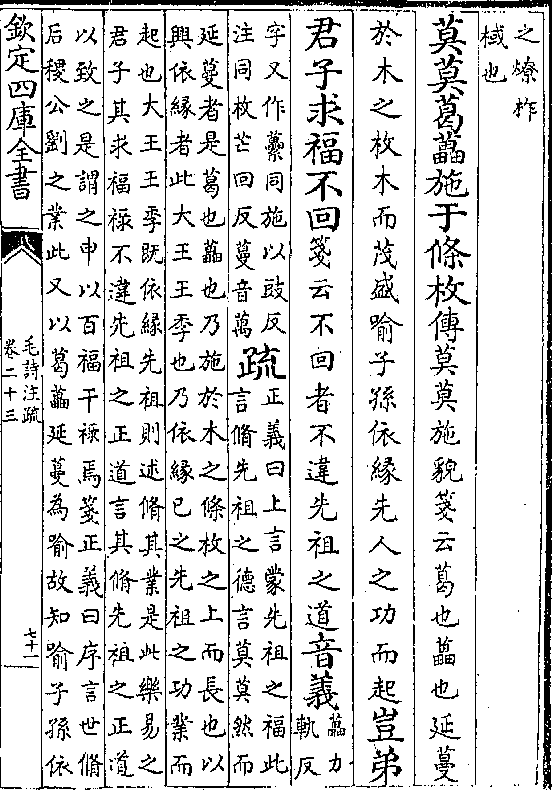 之燎柞
棫也
莫莫葛藟施于條枚傳莫莫施貌箋云葛也藟也延蔓
於木之枚木而茂盛喻子孫依緣先人之功而起豈弟
君子求福不回箋云不回者不違先祖之道音義藟力
軌反
字又作虆同施以豉反
注同枚芒回反蔓音萬
疏
正義曰上言蒙先祖之福此
言脩先祖之德言莫莫然而
延蔓者是葛也藟也乃施於木之條枚之上而長也以
興依緣者此大王王季也乃依緣已之先祖之功業而
起也大王王季既依緣先祖則述脩其業是此樂易之
君子其求福祿不違先祖之正道言其脩先祖之正道
以致之是謂之申以百福干祿焉箋正義曰序言世脩
后稷公劉之業此又以葛藟延蔓為喻故知喻子孫依
欽定四庫全書
毛詩注疏
卷二十三
七十一